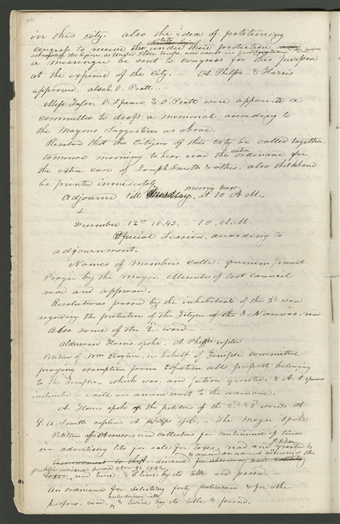 in this city. also the idea of petitioning
congress to receive the under their protection
a messenger be sent to congress for this purpose
at the expense of the city. — A. Phelps & Harris
approved. also O. Pratt.
Messrs Taylor. O. Spencer & O Pratt were appointed a
committee to draft a memorial according to
the Mayors suggestion as above.
Resolved that the citizens of this city be called together
tomorrow morning to hear read the ordinance for
the extra case of Joseph Smith & others, also that hand
be printed immediately
adjourned till morning next. at 10 A M.
December 12th 1843. 10. A.M.
Special Session. according to
adjournment.
Names of Members called. Quorum present.
Prayer by the Mayor. Minutes of last council
read and approved.
Resolutions passed by the inhabitants of the 3d ward
regarding the protection of the citizens of Nauvoo. read
Also some of the 2d ward.
Alderman Harris spoke. A. Phelps replied
Petition of Wm Clayton, in behalf of Temple committee
praying exemption from taxation all property belonging
to the Temple. which was read petition granted. & A. Spencer
instructed to write an amendment to the ordinance.
A. Harris spoke of the petition of the 2d & 3d wards. of
G. A. Smith replied. A. Phelps spk. — The Mayor spoke
Petition of assessors and collectors for continuance of time
on advertising lots for sale for taxes, read and granted by
public
read twice, & third by its title and passed.
An ordinance for selecting forty policemen & for other
purposes. read. & twice by its title & passed.